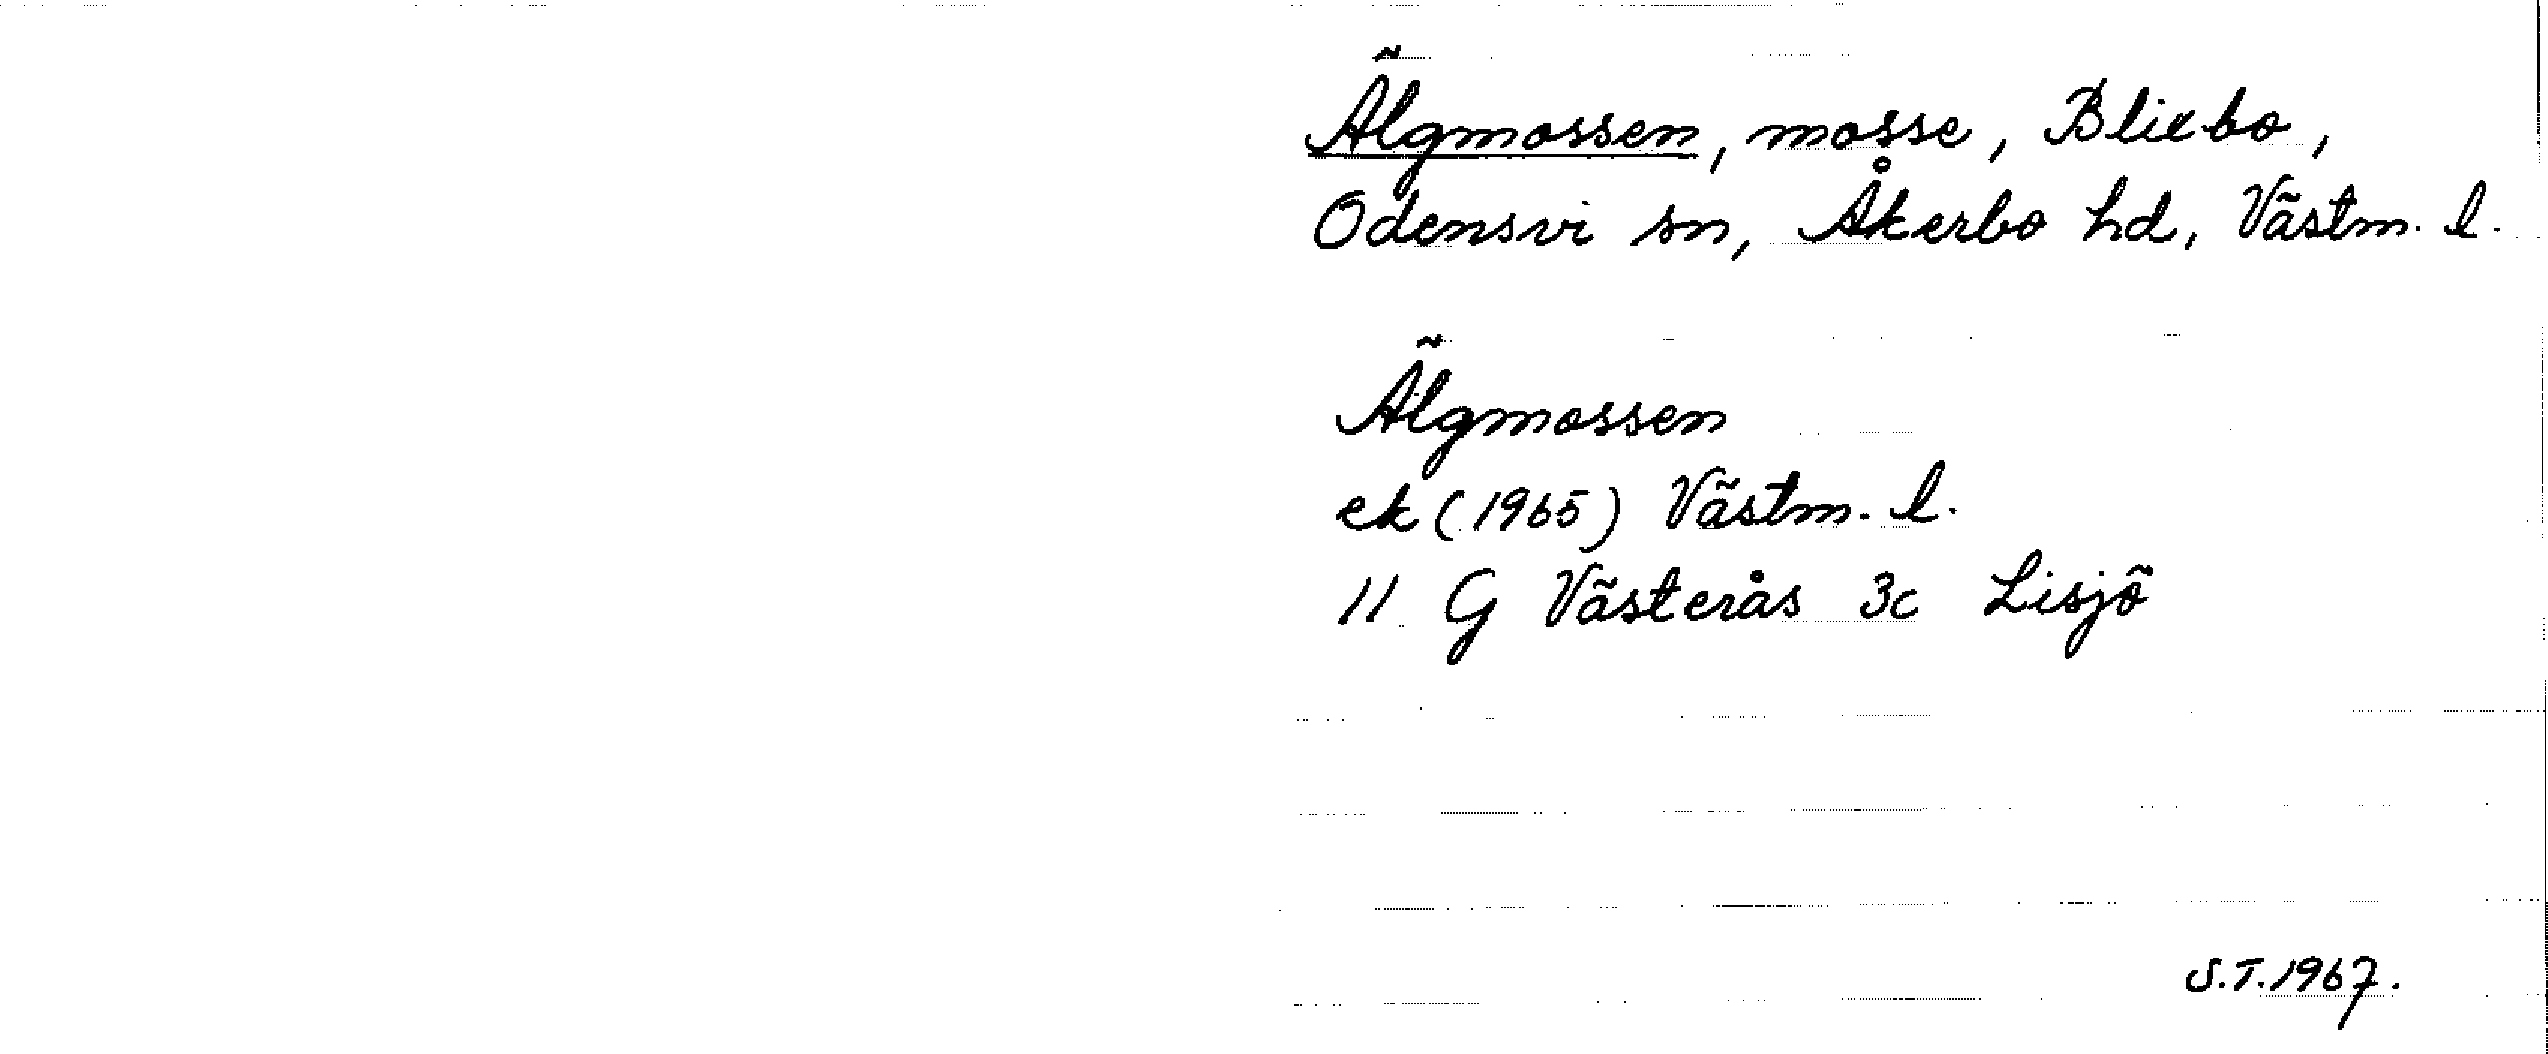 Älgmossen, mosse, Blixbo,
Odensvi sn, Åkerbo hd, Västm. l.
Älgmossen
ek (1965) Västm. l.
11 G Västerås 3c Lisjö
S.T. 1967.